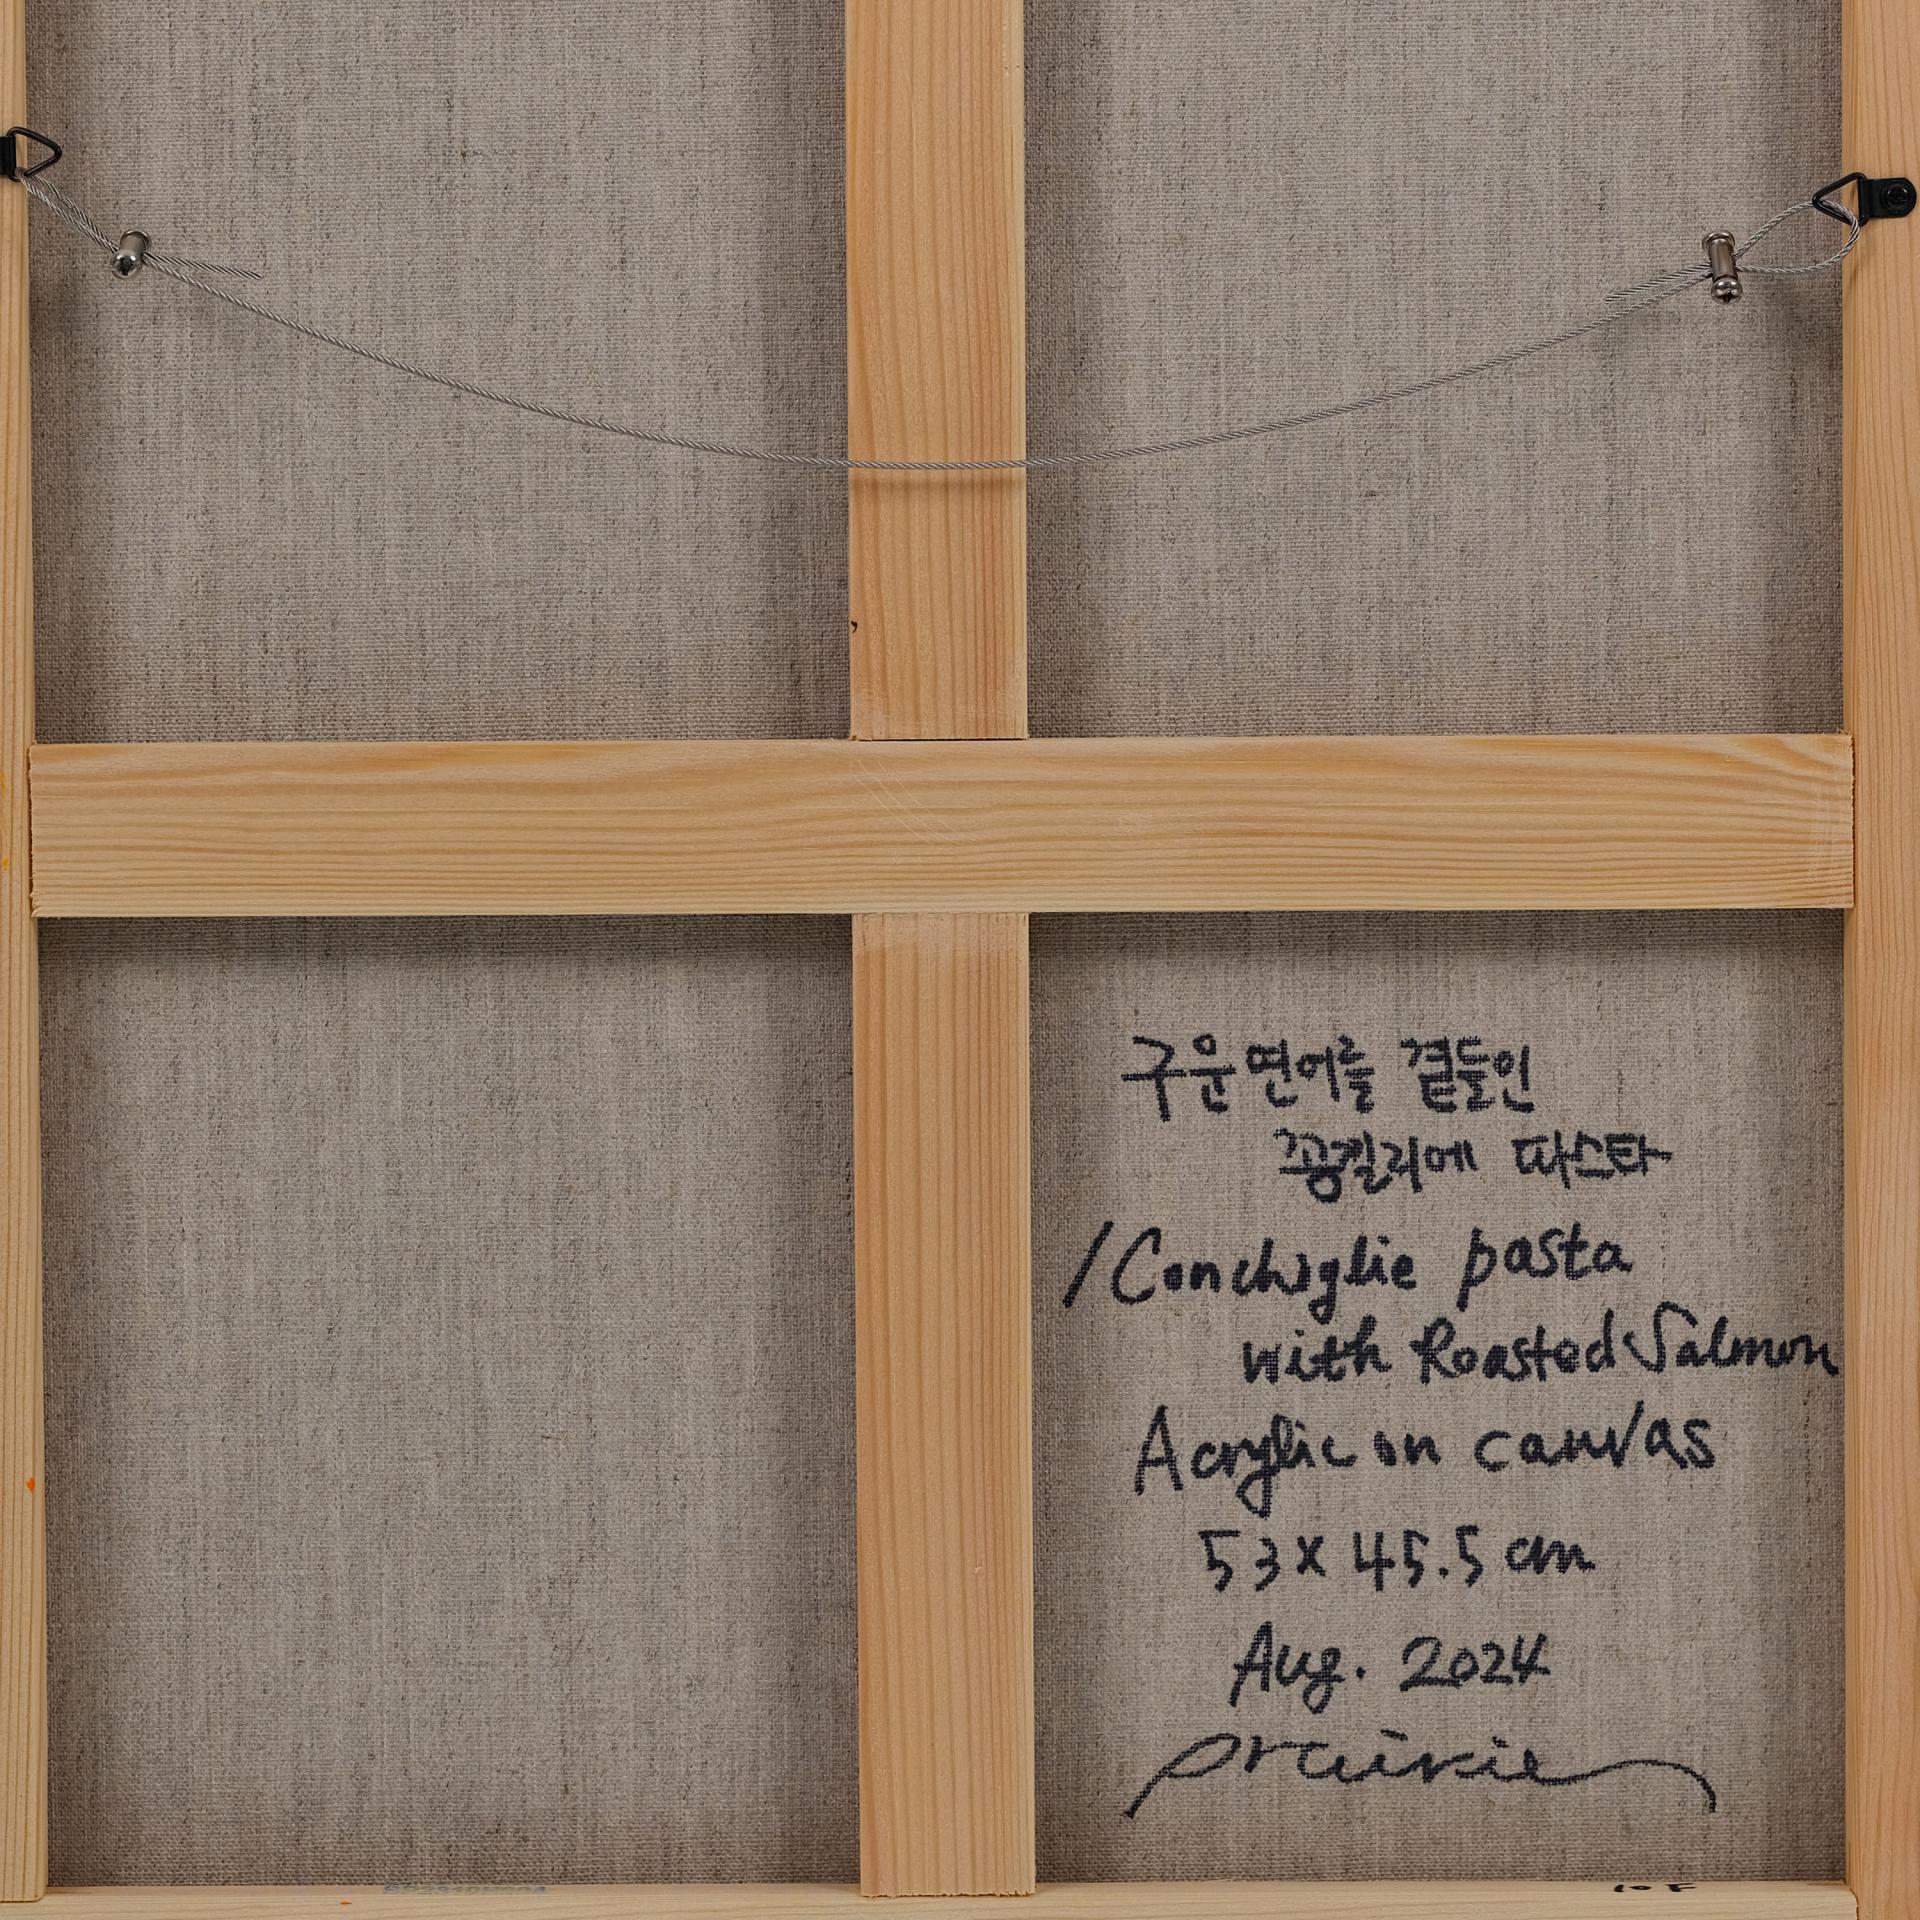 구운 연어를 곁들인
꽁킬리에 파스타
/Conchiglie pasta
with Roasted Salmon
Acrylic on canvas
53 x 45.5 cm
Aug. 2024
prairie
10F